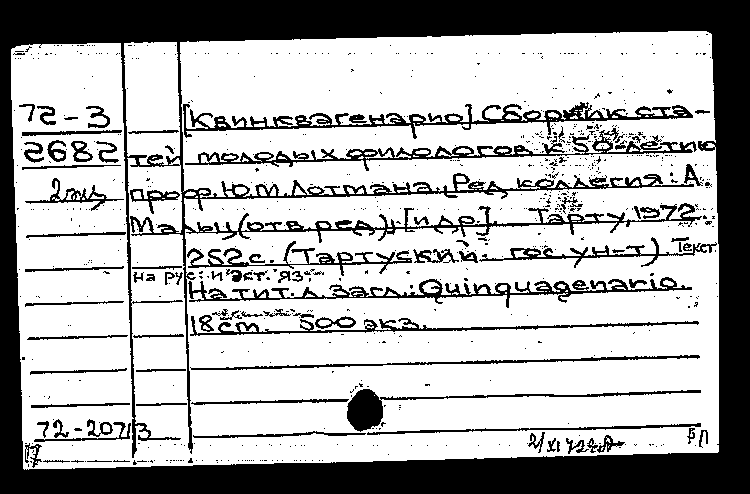 72-3 [Квинквагенарио] Сборник ста-
2682 тей молодых филологов к 50-летию
2 экз проф. Ю.М. Лотмана. Ред. коллегия: А.
Мальц (отв. ред.), [и др]. Тарту, 1972.
252 с. (Тартуский. гос. ун-т) Текст
на рус. и эст. яз.
На тит. л. загл.: Quinquagenario.
18 cm. 500 экз.
72-20713
2/XI 72
17 БП